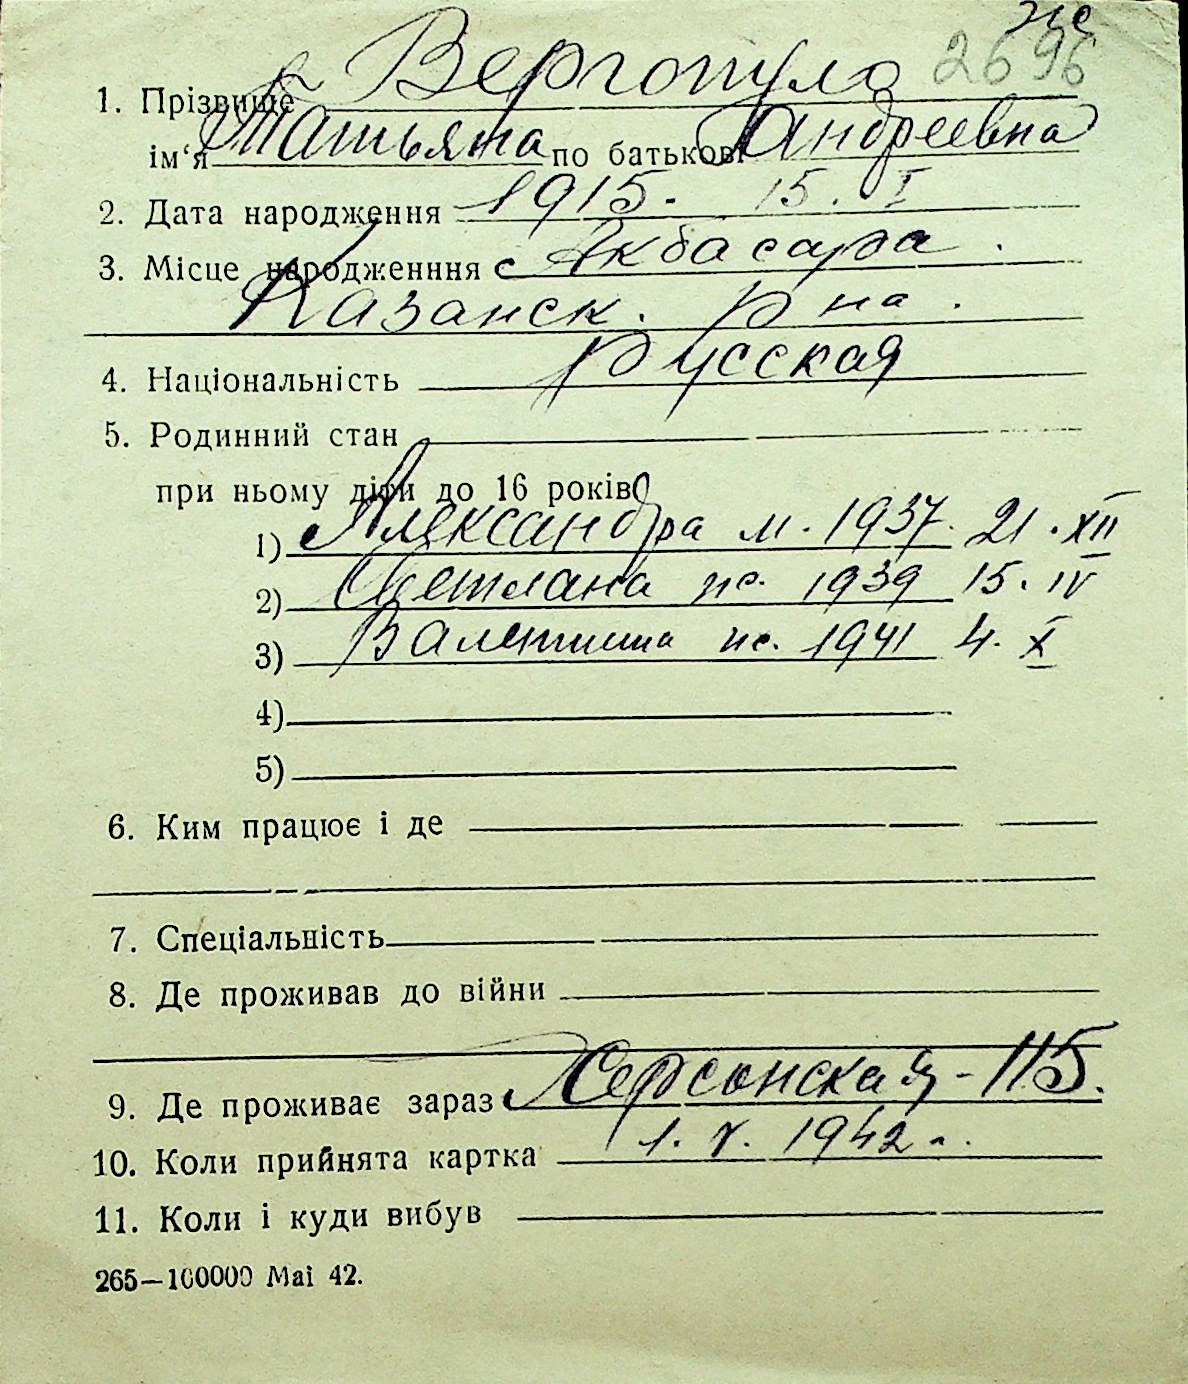 же
2696
1. Прізвище Вергопуло
ім‘я Татьяна по батькові Андреевна
2. Дата народження 1915. 15. I
3. Місце народженння с Акбасара.
Казанск. р на.
4. Національність Русская
5. Родинний стан
при ньому діти до 16 років
1) Александра м. 1937. 21. XII
2) Светлана же. 1939 15. IV
3) Валентина же. 1941 4. X
4)
5)
6. Ким працює і де
7. Спеціальність
8. Де проживав до війни
9. Де проживає зараз Херсонская - 115.
10. Коли прийнята картка 1. V. 1942 г.
11. Коли і куди вибув
265—100000 Маі 42.